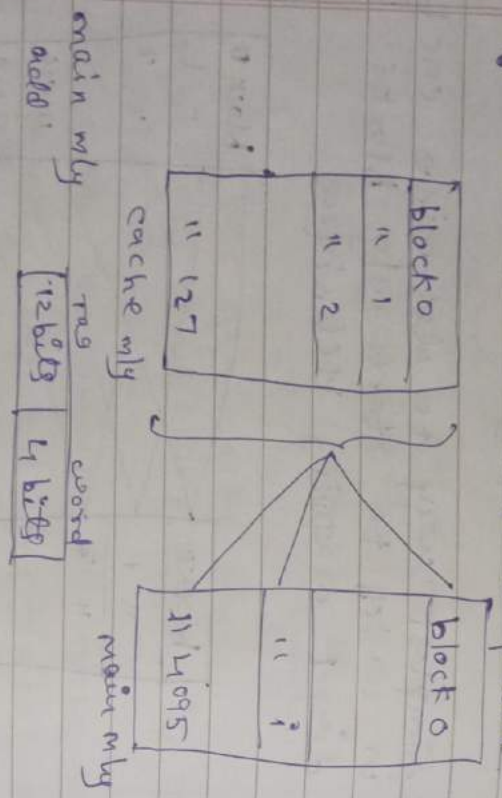 block 0
" 1
" 2
" 127
cache mly
block 0
" i
" 4095
main mly
main mly
add'
tag word
12 bits 4 bits